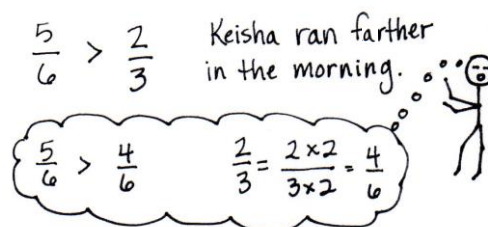 5/6 > 2/3
Keisha ran farther
in the morning.
5/6 > 4/6
2/3 = 2×2/3×2 = 4/6